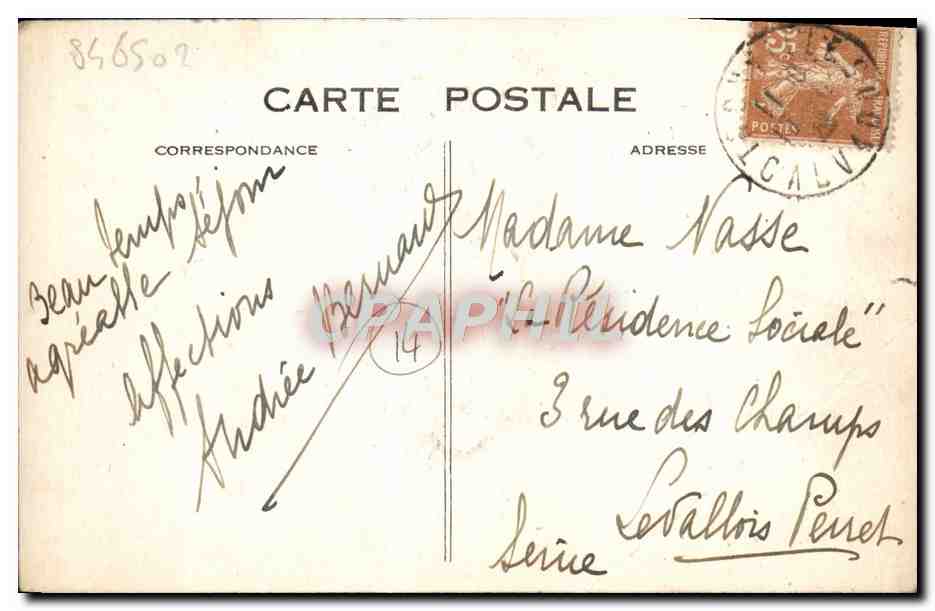 846502
CARTE POSTALE
CORRESPONDANCE
ADRESSE
25
POSTES
CALVA
Beau temps,
agréable séjour
Affections
Andrée Bernard
14
CPAPHIL
Madame Nasse
"La Résidence Sociale"
3 rue des Champs
Levallois Perret
Seine